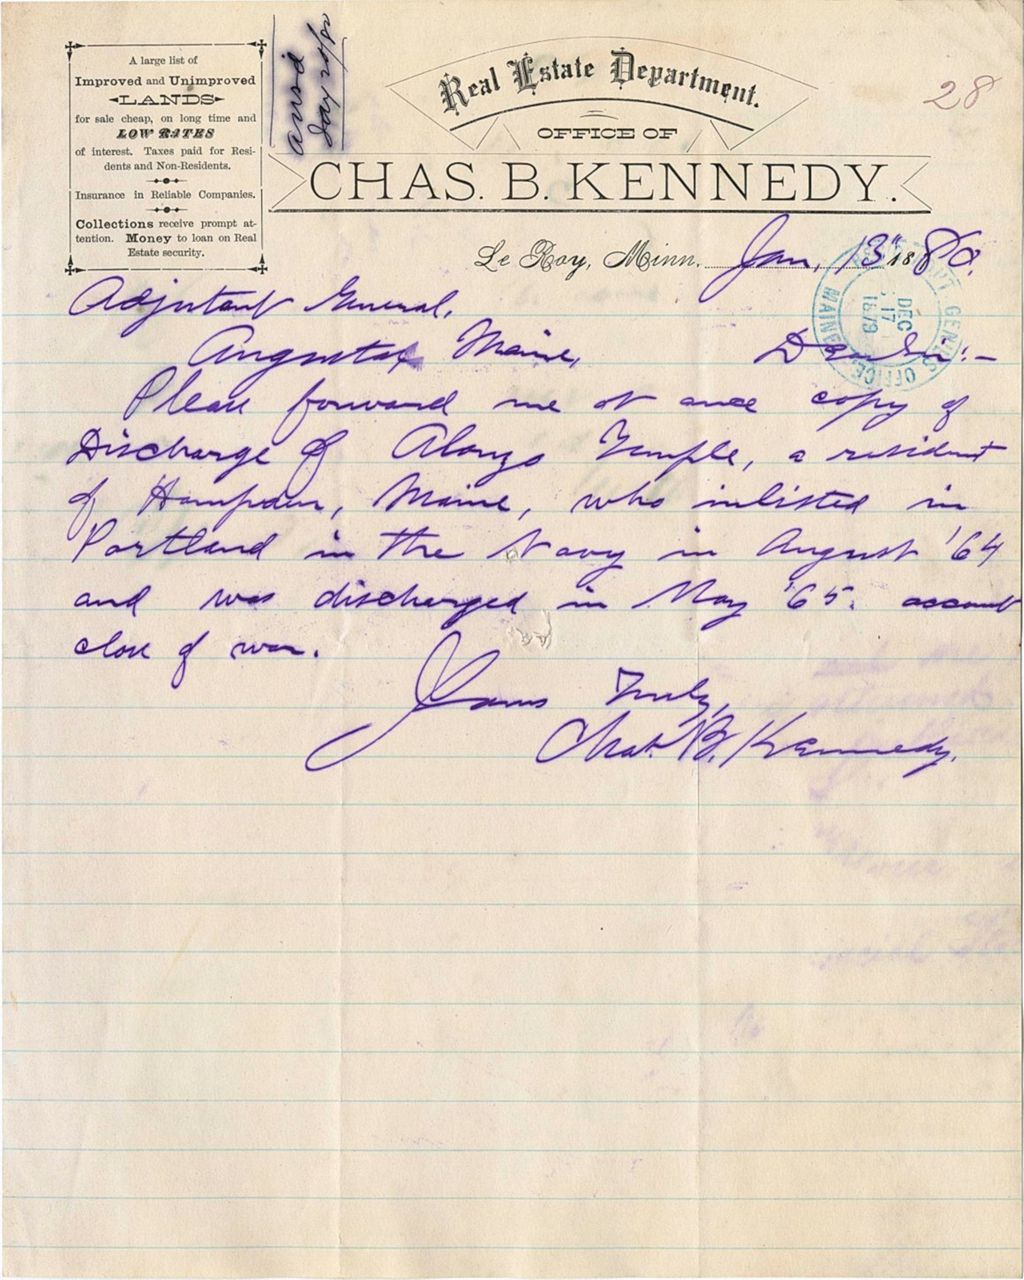 A large list of
Improved and Unimproved
LANDS
for sale cheap, on long time and
LOW RATES
of interest. Taxes paid for Resi-
dents and Non-Residents.
Insurance in Reliable Companies.
Collections receive prompt at-
tention. Money to loan on Real
Estate security.
ansd
Jan 19/80
28
Real Estate Department.
OFFICE OF
CHAS. B. KENNEDY.
Le Roy, Minn. Jan, 13" 1880.
ADJT. GEN'LS OFFICE
MAINE
DEC
17
1879
Adjutant General,
Augusta, Maine, Dear Sir:-
Please forward me at once copy of
Discharge of Alonzo Temple, a resident
of Hampden, Maine, who inlisted in
Portland in the Navy in August '64
and was discharged in May '65. account
close of war.
Yours Truly,
Chas. B. Kennedy.